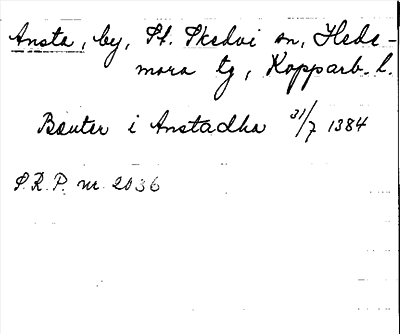 Ansta, by, St. Skedvi sn, Hede-
mora tg, Kopparb. l.
Bønter i Anstadha 31/7 1384
S.R.P. nr. 2036